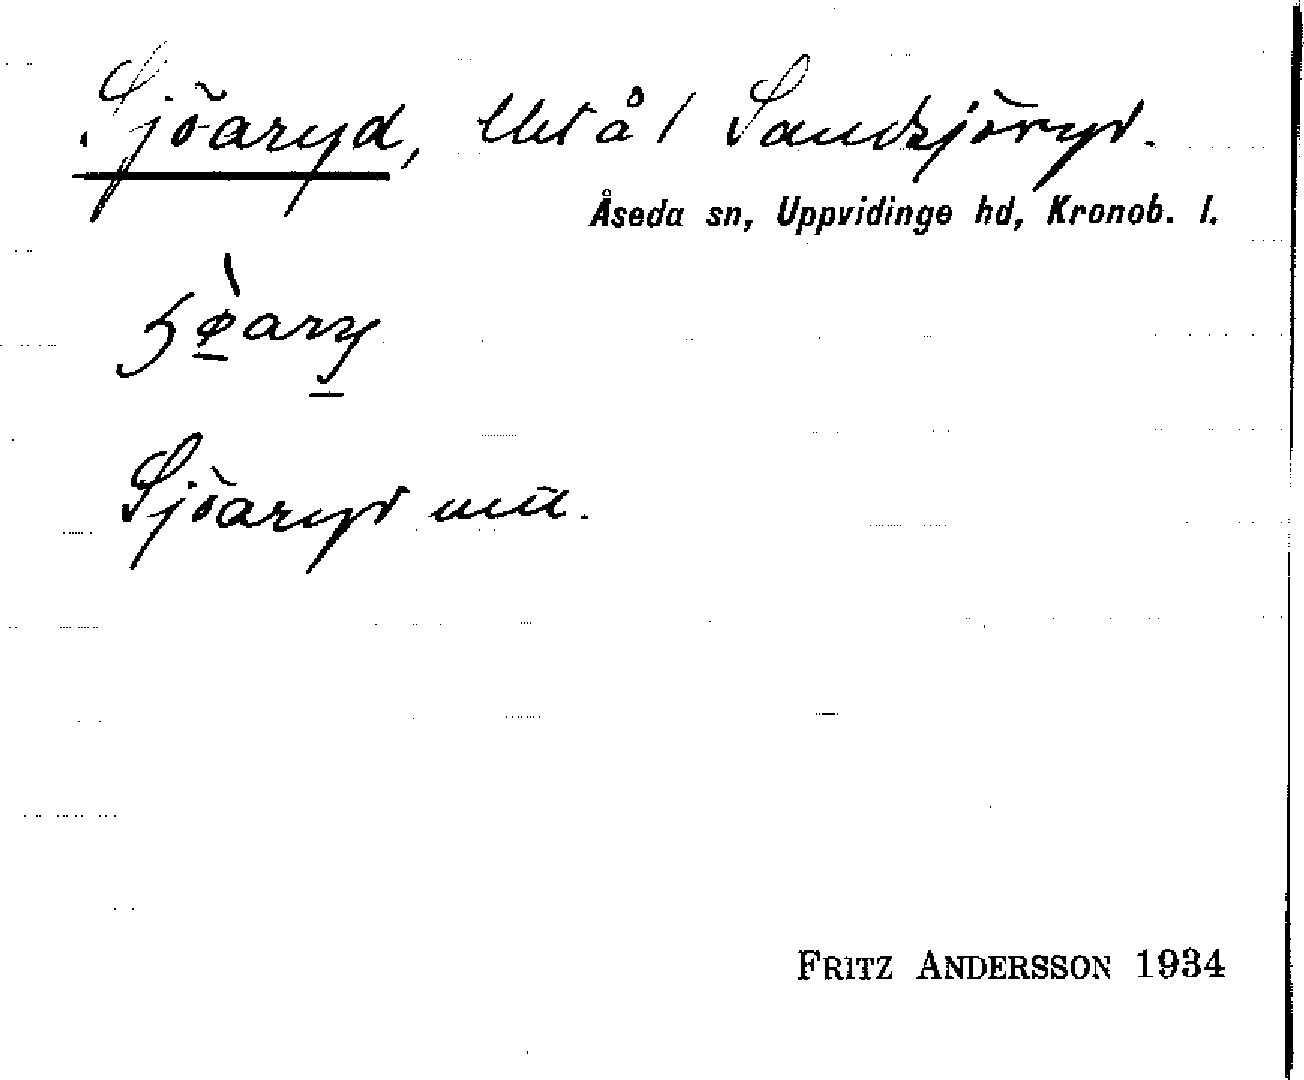 Sjöaryd, lht å 1 Sandsjöryd.
Åseda sn, Uppvidinge hd, Kronob. l.
Sjöaryd
FRITZ ANDERSSON 1934